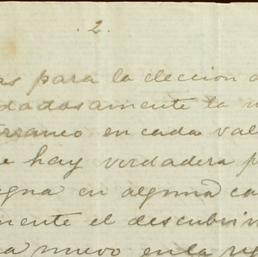 . 2.
as para la eleccion d
dadosamente la
terraneo en cada val
e hay verdadera p
gna en alguna ca
mente el descubrim
a nuevo en la re